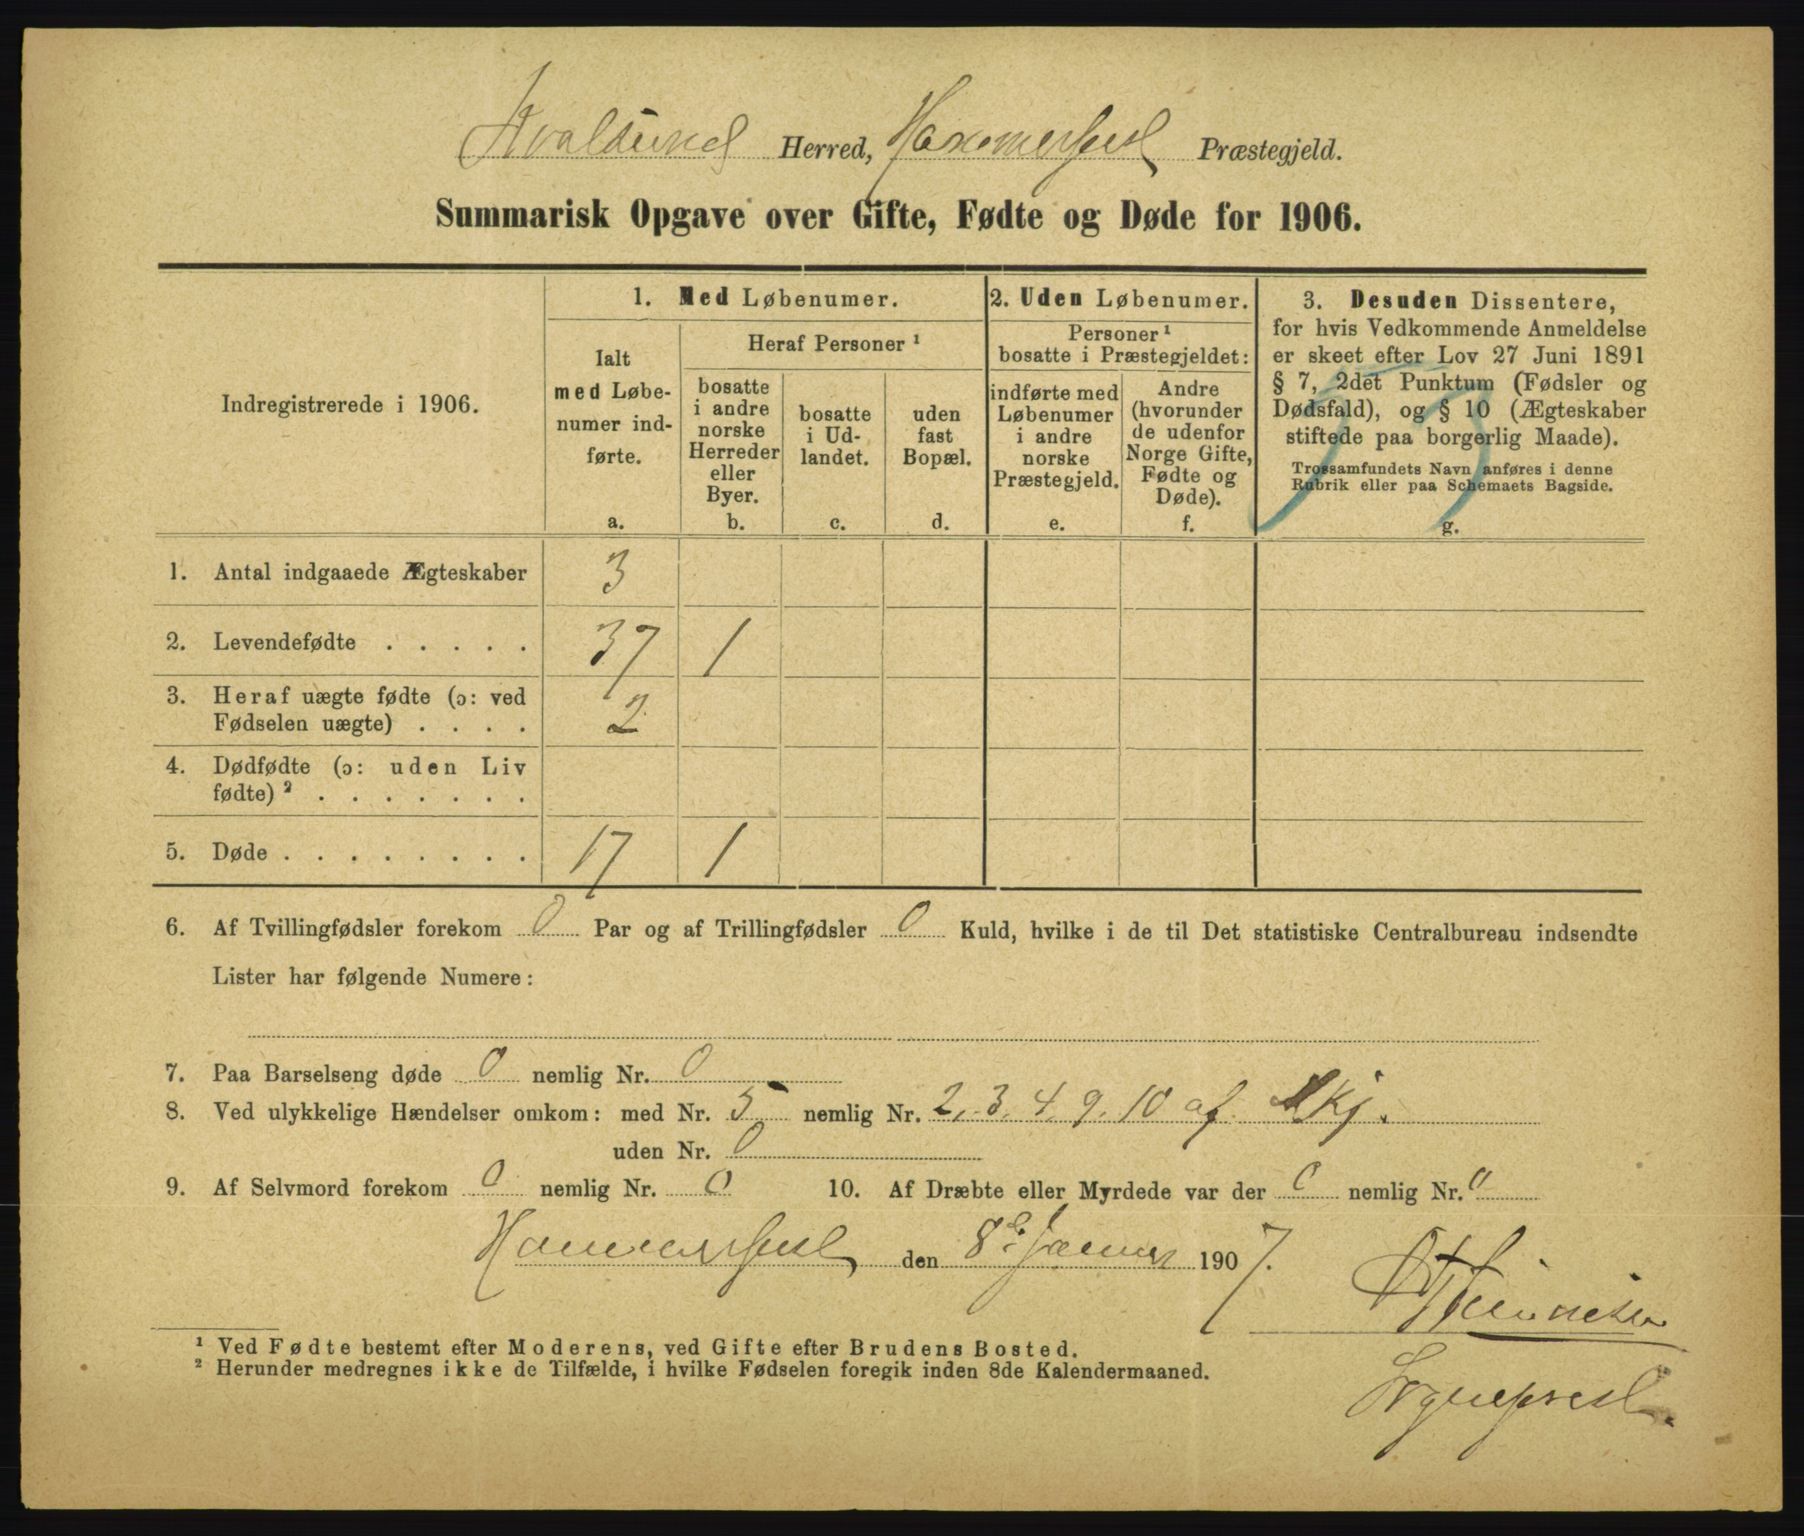 Kvalsund Herred, Hammerfest Præstegjeld.
Summarisk Opgave over Gifte, Fødte og Døde for 1906.
Indregistrerede i 1906.
1. Med Løbenumer.
Ialt
med Løbe-
numer ind-
førte.
a.
Heraf Personer ¹
bosatte
i andre
norske
Herreder
eller
Byer.
b.
bosatte
i Ud-
landet.
c.
uden
fast
Bopæl.
d.
2. Uden Løbenumer.
Personer ¹
bosatte i Præstegjeldet:
indførte med
Løbenumer
i andre
norske
Præstegjeld.
e.
Andre
(hvorunder
de udenfor
Norge Gifte,
Fødte og
Døde).
f.
3. Desuden Dissentere,
for hvis Vedkommende Anmeldelse
er skeet efter Lov 27 Juni 1891
§ 7, 2det Punktum (Fødsler og
Dødsfald), og § 10 (Ægteskaber
stiftede paa borgerlig Maade).
Trossamfundets Navn anføres i denne
Rubrik eller paa Schemaets Bagside.
g.
1. Antal indgaaede Ægteskaber 3
2. Levendefødte . . . . . 37 1
3. Heraf uægte fødte (ɔ: ved
Fødselen uægte) . . . . 2
4. Dødfødte (ɔ: uden Liv
fødte) ² . . . . . . .
5. Døde . . . . . . . . 17 1
6. Af Tvillingfødsler forekom 0 Par og af Trillingfødsler 0 Kuld, hvilke i de til Det statistiske Centralbureau indsendte
Lister har følgende Numere:
7. Paa Barselseng døde 0 nemlig Nr. 0
8. Ved ulykkelige Hændelser omkom: med Nr. 5 nemlig Nr. 2, 3, 4, 9, 10 af Mkj.
uden Nr. 0
9. Af Selvmord forekom 0 nemlig Nr. 0 10. Af Dræbte eller Myrdede var der 0 nemlig Nr. 0
Hammerfest den 8de Januar 1907.
¹ Ved Fødte bestemt efter Moderens, ved Gifte efter Brudens Bosted.
² Herunder medregnes ikke de Tilfælde, i hvilke Fødselen foregik inden 8de Kalendermaaned.
Sognepræst.